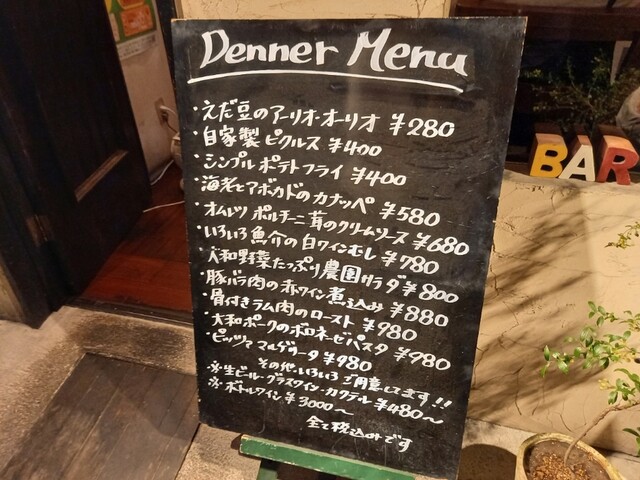 Denner Menu
・えだ豆のアーリオ・オーリオ ¥280
・自家製ピクルス ¥400
・シンプルポテトフライ ¥400
・海老とアボカドのカナッペ ¥580
・オムレツ ポルチーニ茸のクリームソース ¥680
・いろいろ魚介の白ワインむし ¥780
・大和野菜たっぷり農園サラダ ¥800
・豚バラ肉の赤ワイン煮込み ¥880
・骨付きラム肉のロースト ¥980
・大和ポークのボロネーゼパスタ ¥980
・ピッツァ マルゲリータ ¥980
その他いろいろご用意してます!!
※生ビール・グラスワイン・カクテル ¥480〜
※ボトルワイン ¥3000〜
全て税込みです
BAR